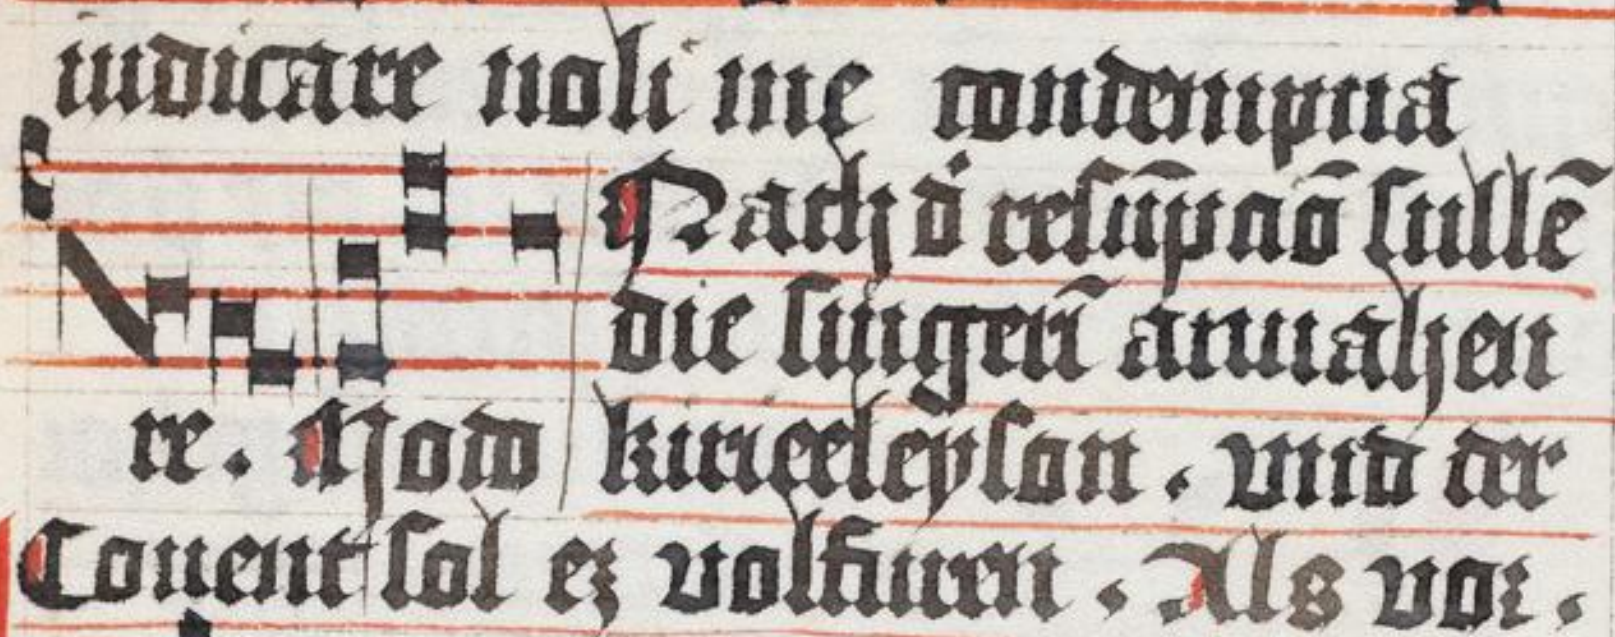 iudicare noli me condempna
Nach d̓ resūpciō sullē
die singerī anuahen
re. Quod kirieeleyson. vnd der
Conent sol ez volfuren. Als vor.